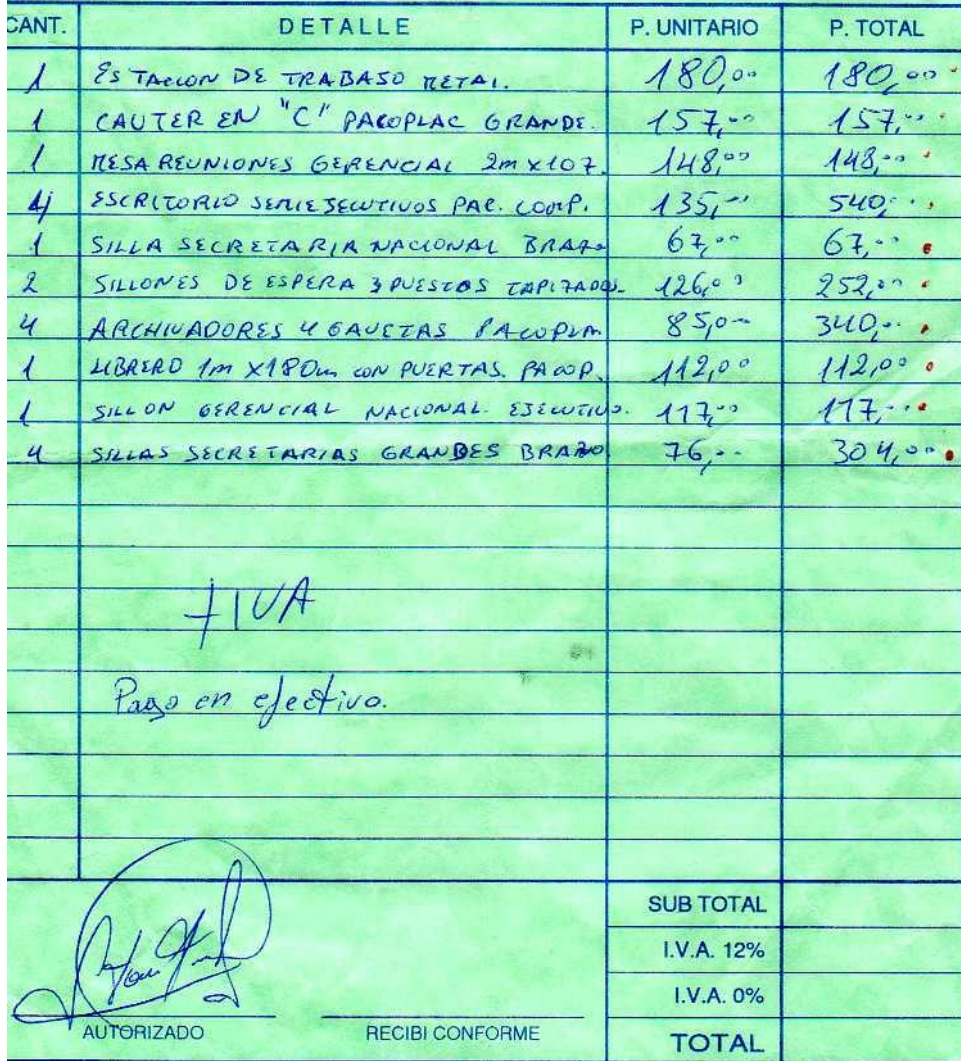 CANT. DETALLE P. UNITARIO P. TOTAL
1 ESTACION DE TRABAJO METAL. 180,00 180,00
1 CAUTER EN "C" PACOPLAC GRANDE. 157,00 157,00
1 MESA REUNIONES GERENCIAL 2m x 107 148,00 148,00
4 ESCRITORIO SEMIEJECUTIVOS PAC. COMP. 135,00 540,00
1 SILLA SECRETARIA NACIONAL BRAZO 67,00 67,00
2 SILLONES DE ESPERA 3 PUESTOS TAPIZADOS. 126,00 252,00
4 ARCHIVADORES 4 GAVETAS PACOPLA 85,00 340,00
1 LIBRERO 1m X180m CON PUERTAS. PACOP. 112,00 112,00
1 SILLON GERENCIAL NACIONAL. EJECUTIVO. 117,00 117,00
4 SILLAS SECRETARIAS GRANDES BRAZO 76,00 304,00
+ IVA
Pago en efectivo.
SUB TOTAL
I.V.A. 12%
I.V.A. 0%
AUTORIZADO RECIBI CONFORME TOTAL